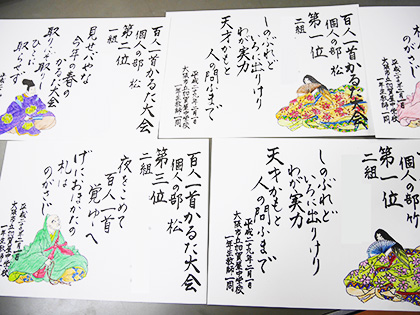 百人一首かるた大会
個人の部 松
第二位
一組
見せばやな
今年の春の
かるた大会
取りに取り
ひと
取らず
平成二
百人一首かるた大会
個人の部 松
第一位
二組
しのぶれど
いろに出りけり
わが実力
天才かもと
人の問ふまで
平成二九年二月一日
大阪市立加賀屋中学校
一年生教師一同
のがさじ
百人一首かるた大会
個人の部 松
第三位
二組
夜をこめて
百人一首
覚ゆーへ
げにおほかたの
札は
のがさじ
平成二九年二月一日
大阪市立加賀屋中学校
一年生教師一同
百人一首かるた大会
個人の部 竹
第一位
二組
しのぶれど
いろに出りけり
わが実力
天才かもと
人の問ふまで
平成二九年二月一日
大阪市立加賀屋中学校
一年生教師一同